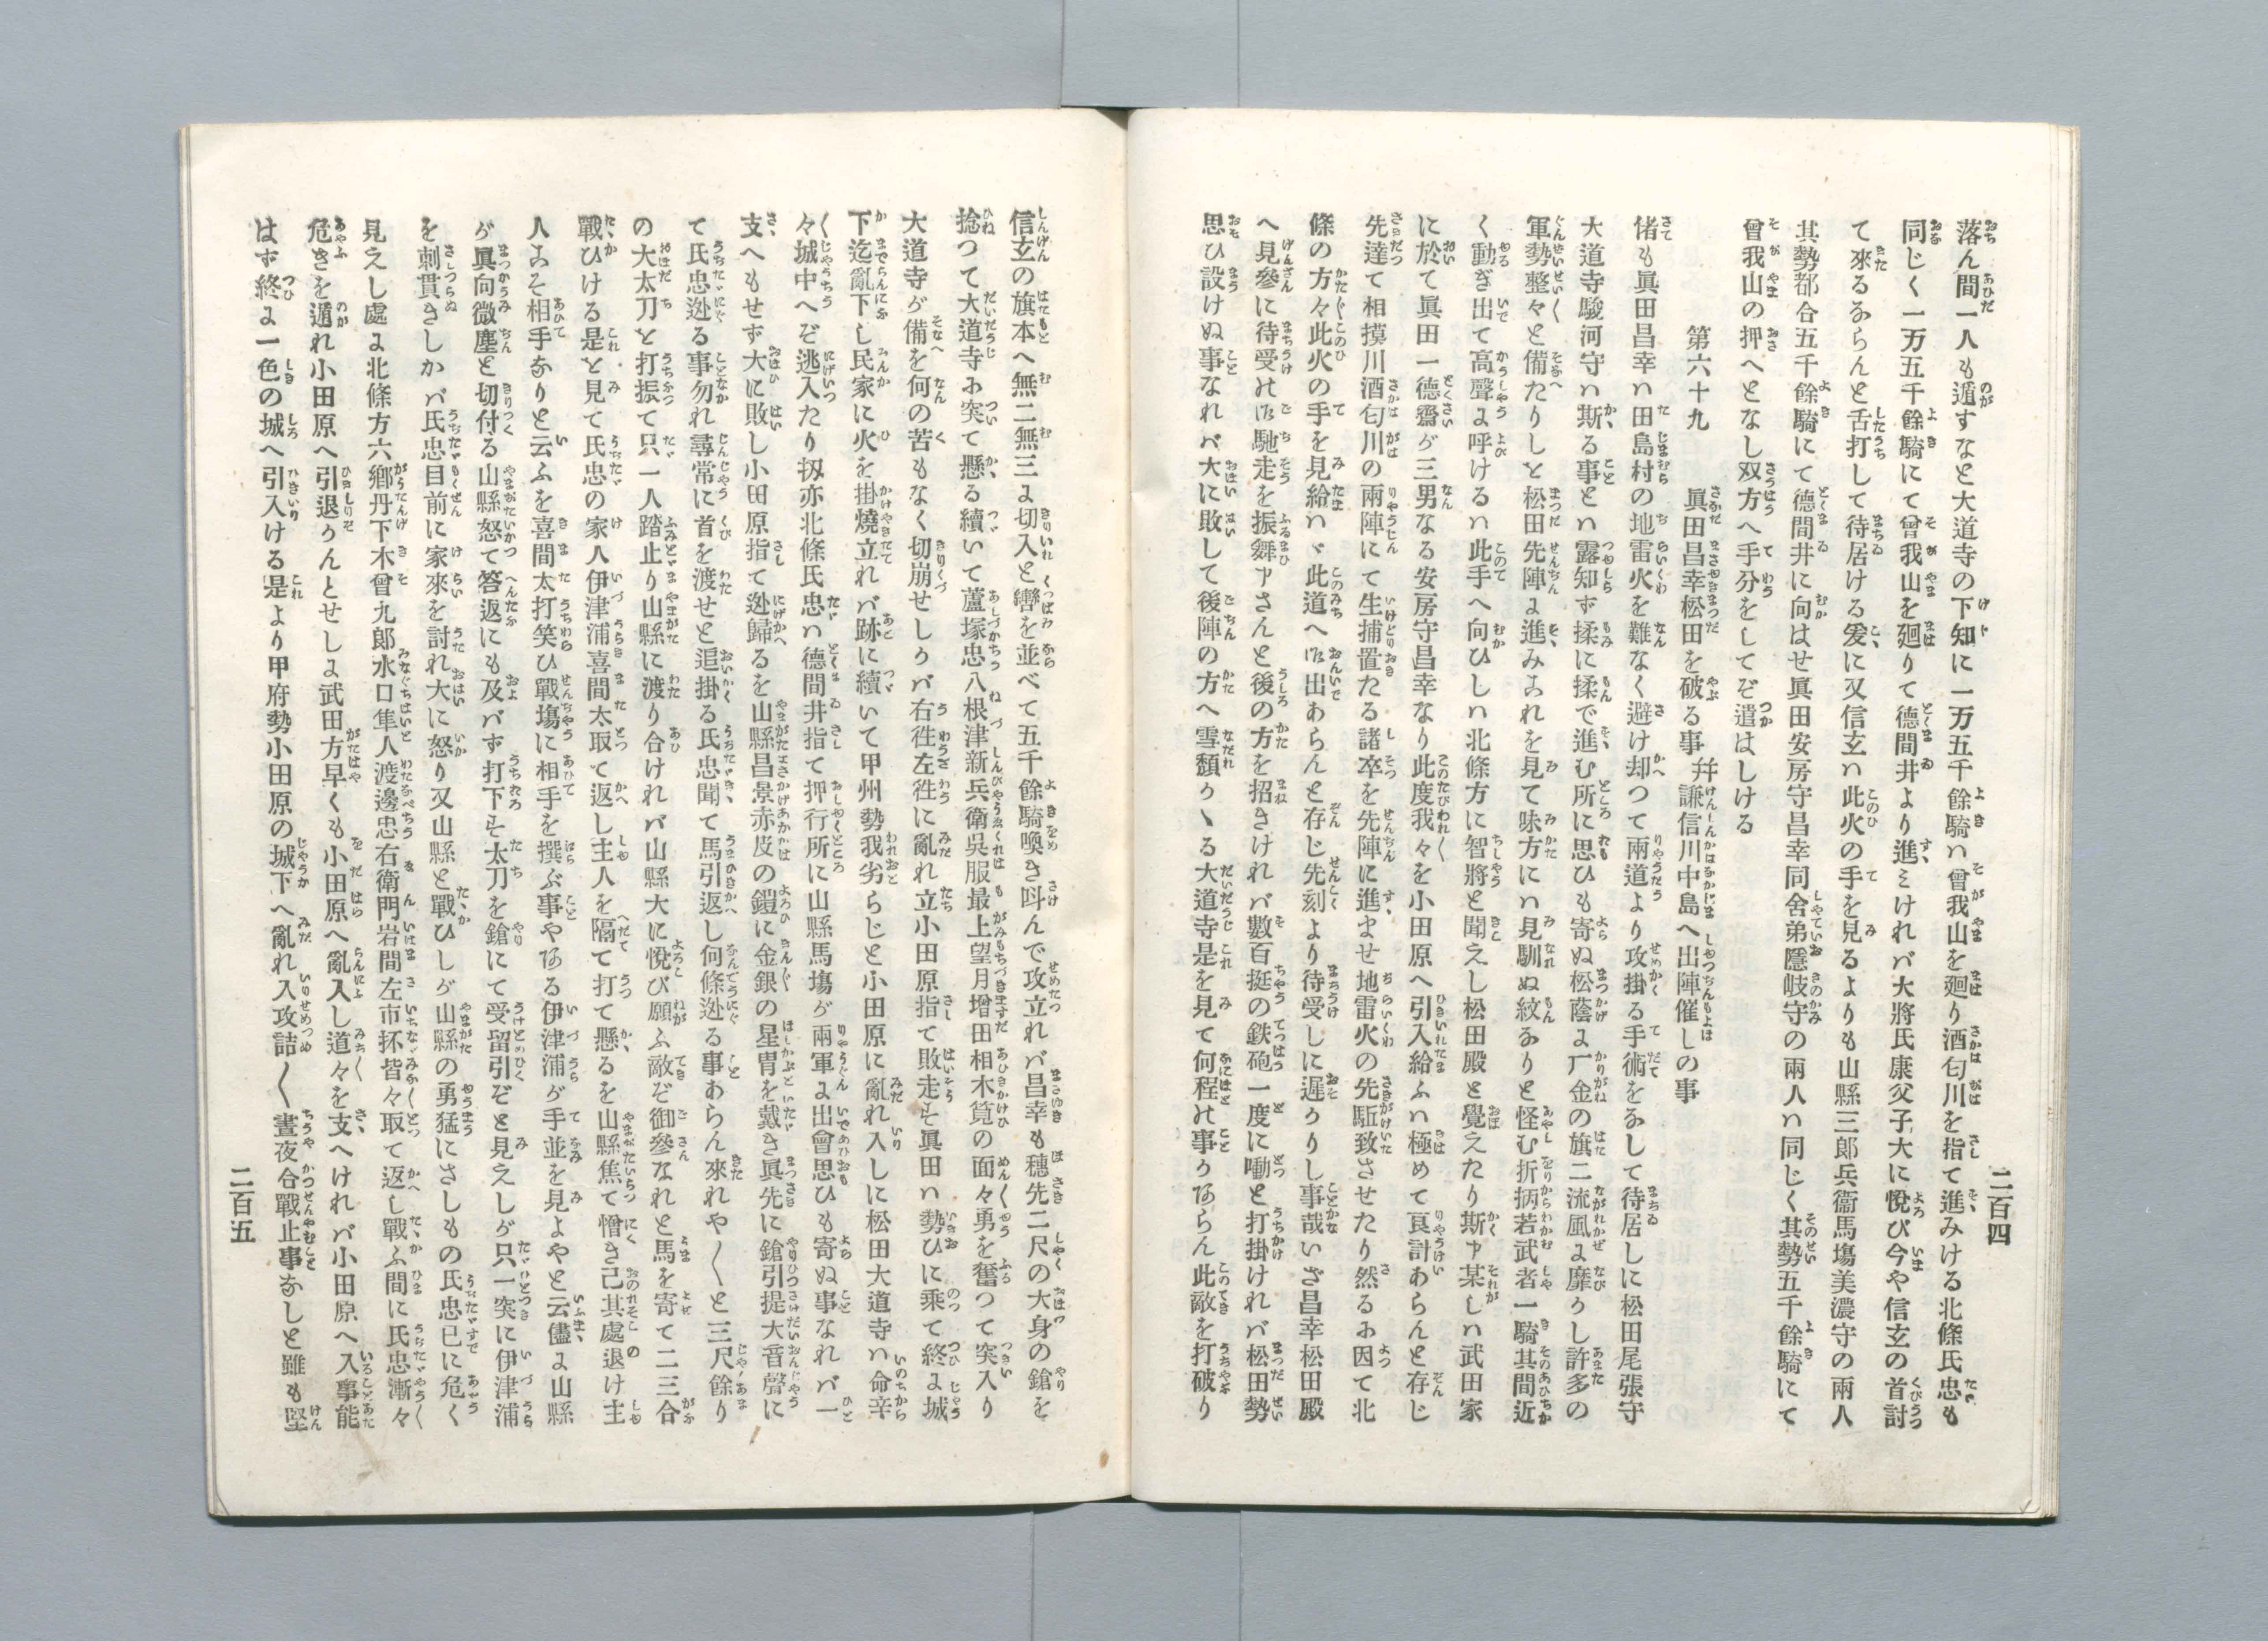 二百四
落ん間一人も遁すなと大道寺の下知に一万五千餘騎ハ曾我山を廻り酒匂川を指て進みける北條氏忠も
同じく一万五千餘騎にて曾我山を廻りて德間井より進ミけれバ大將氏康父子大に悅び今や信玄の首討
て來るならんと舌打して待居ける爰に又信玄ハ此火の手を見るよりも山縣三郎兵衞馬塲美濃守の兩人
其勢都合五千餘騎にて德間井に向はせ眞田安房守昌幸同舍弟隱岐守の兩人ハ同じく其勢五千餘騎にて
曾我山の押へとなし双方へ手分をしてぞ遣はしける
第六十九　眞田昌幸松田を破る事　幷謙信川中島へ出陣催しの事
偖も眞田昌幸ハ田島村の地雷火を難なく避け却つて兩道より攻掛る手術をなして待居しに松田尾張守
大道寺駿河守ハ斯る事とハ露知ず揉に揉で進む所に思ひも寄ぬ松蔭よ厂金の旗二流風よ靡かし許多の
軍勢整々と備たりしと松田先陣よ進みこれを見て味方にハ見馴ぬ紋なりと怪む折柄若武者一騎其間近
く動ぎ出て高聲よ呼けるハ此手へ向ひしハ北條方に智將と聞えし松田殿と覺えたり斯ヤ某しハ武田家
に於て眞田一德齋が三男なる安房守昌幸なり此度我々を小田原へ引入給ふハ極めて良計あらんと存じ
先達て相摸川酒匂川の兩陣にて生捕置たる諸卒を先陣に進ませ地雷火の先駈致させたり然るお因て北
條の方々此火の手を見給ハヾ此道へ御出あらんと存じ先刻より待受しに遲かりし事哉いざ昌幸松田殿
へ見參に待受の御馳走を振舞ヤさんと後の方を招きけれバ數百挺の鉄砲一度に噇と打掛けれバ松田勢
思ひ設けぬ事なれバ大に敗して後陣の方へ雪頽かゝる大道寺是を見て何程の事かあらん此敵を打破り
信玄の旗本へ無二無三よ切入と轡を並べて五千餘騎喚き叫んで攻立れバ昌幸も穗先二尺の大身の鎗を
捻つて大道寺お突て懸る續いて蘆塚忠八根津新兵衛吳服最上望月增田相木筧の面々勇を奮つて突入り
大道寺が備を何の苦もなく切崩せしかバ右徃左徃に亂れ立小田原指て敗走を眞田ハ勢ひに乘て終よ城
下迄亂下し民家に火を掛燒立れバ跡に續いて甲州勢我劣らじと小田原に亂れ入しに松田大道寺ハ命辛
々城中へぞ逃入たり扨亦北條氏忠ハ德間井指て押行所に山縣馬塲が兩軍よ出會思ひも寄ぬ事なれバ一
支へもせず大に敗し小田原指て迯歸るを山縣昌景赤皮の鎧に金銀の星冑を戴き眞先に鎗引提大音聲に
て氏忠迯る事勿れ尋常に首を渡せと追掛る氏忠聞て馬引返し何條迯る事あらん來れや〳〵と三尺餘り
の大太刀と打振て只一人踏止り山縣に渡り合けれバ山縣大に悅び願ふ敵ぞ御參なれと馬を寄て二三合
戰ひける是と見て氏忠の家人伊津浦喜間太取て返し主人を隔て打て懸るを山縣焦て憎き己其處退け主
人こそ相手なりと云ふを喜間太打笑ひ戰塲に相手を撰ぶ事やある伊津浦が手並を見よやと云儘よ山縣
が眞向微塵と切付る山縣怒て答返にも及バず打下を太刀を鎗にて受留引ぞと見えしが只一突に伊津浦
を刺貫きしかバ氏忠目前に家來を討れ大に怒り又山縣と戰ひしが山縣の勇猛にさしもの氏忠已に危く
見えし處よ北條方六鄉丹下木曾九郎水口隼人渡邊忠右衛門岩間左市抔皆々取て返し戰ふ間に氏忠漸々
危きを遁れ小田原へ引退かんとせしよ武田方早くも小田原へ亂入し道々を支へけれバ小田原へ入事能
はず終よ一色の城へ引入ける是より甲府勢小田原の城下へ亂れ入攻詰〳〵晝夜合戰止事なしと雖も堅
二百五